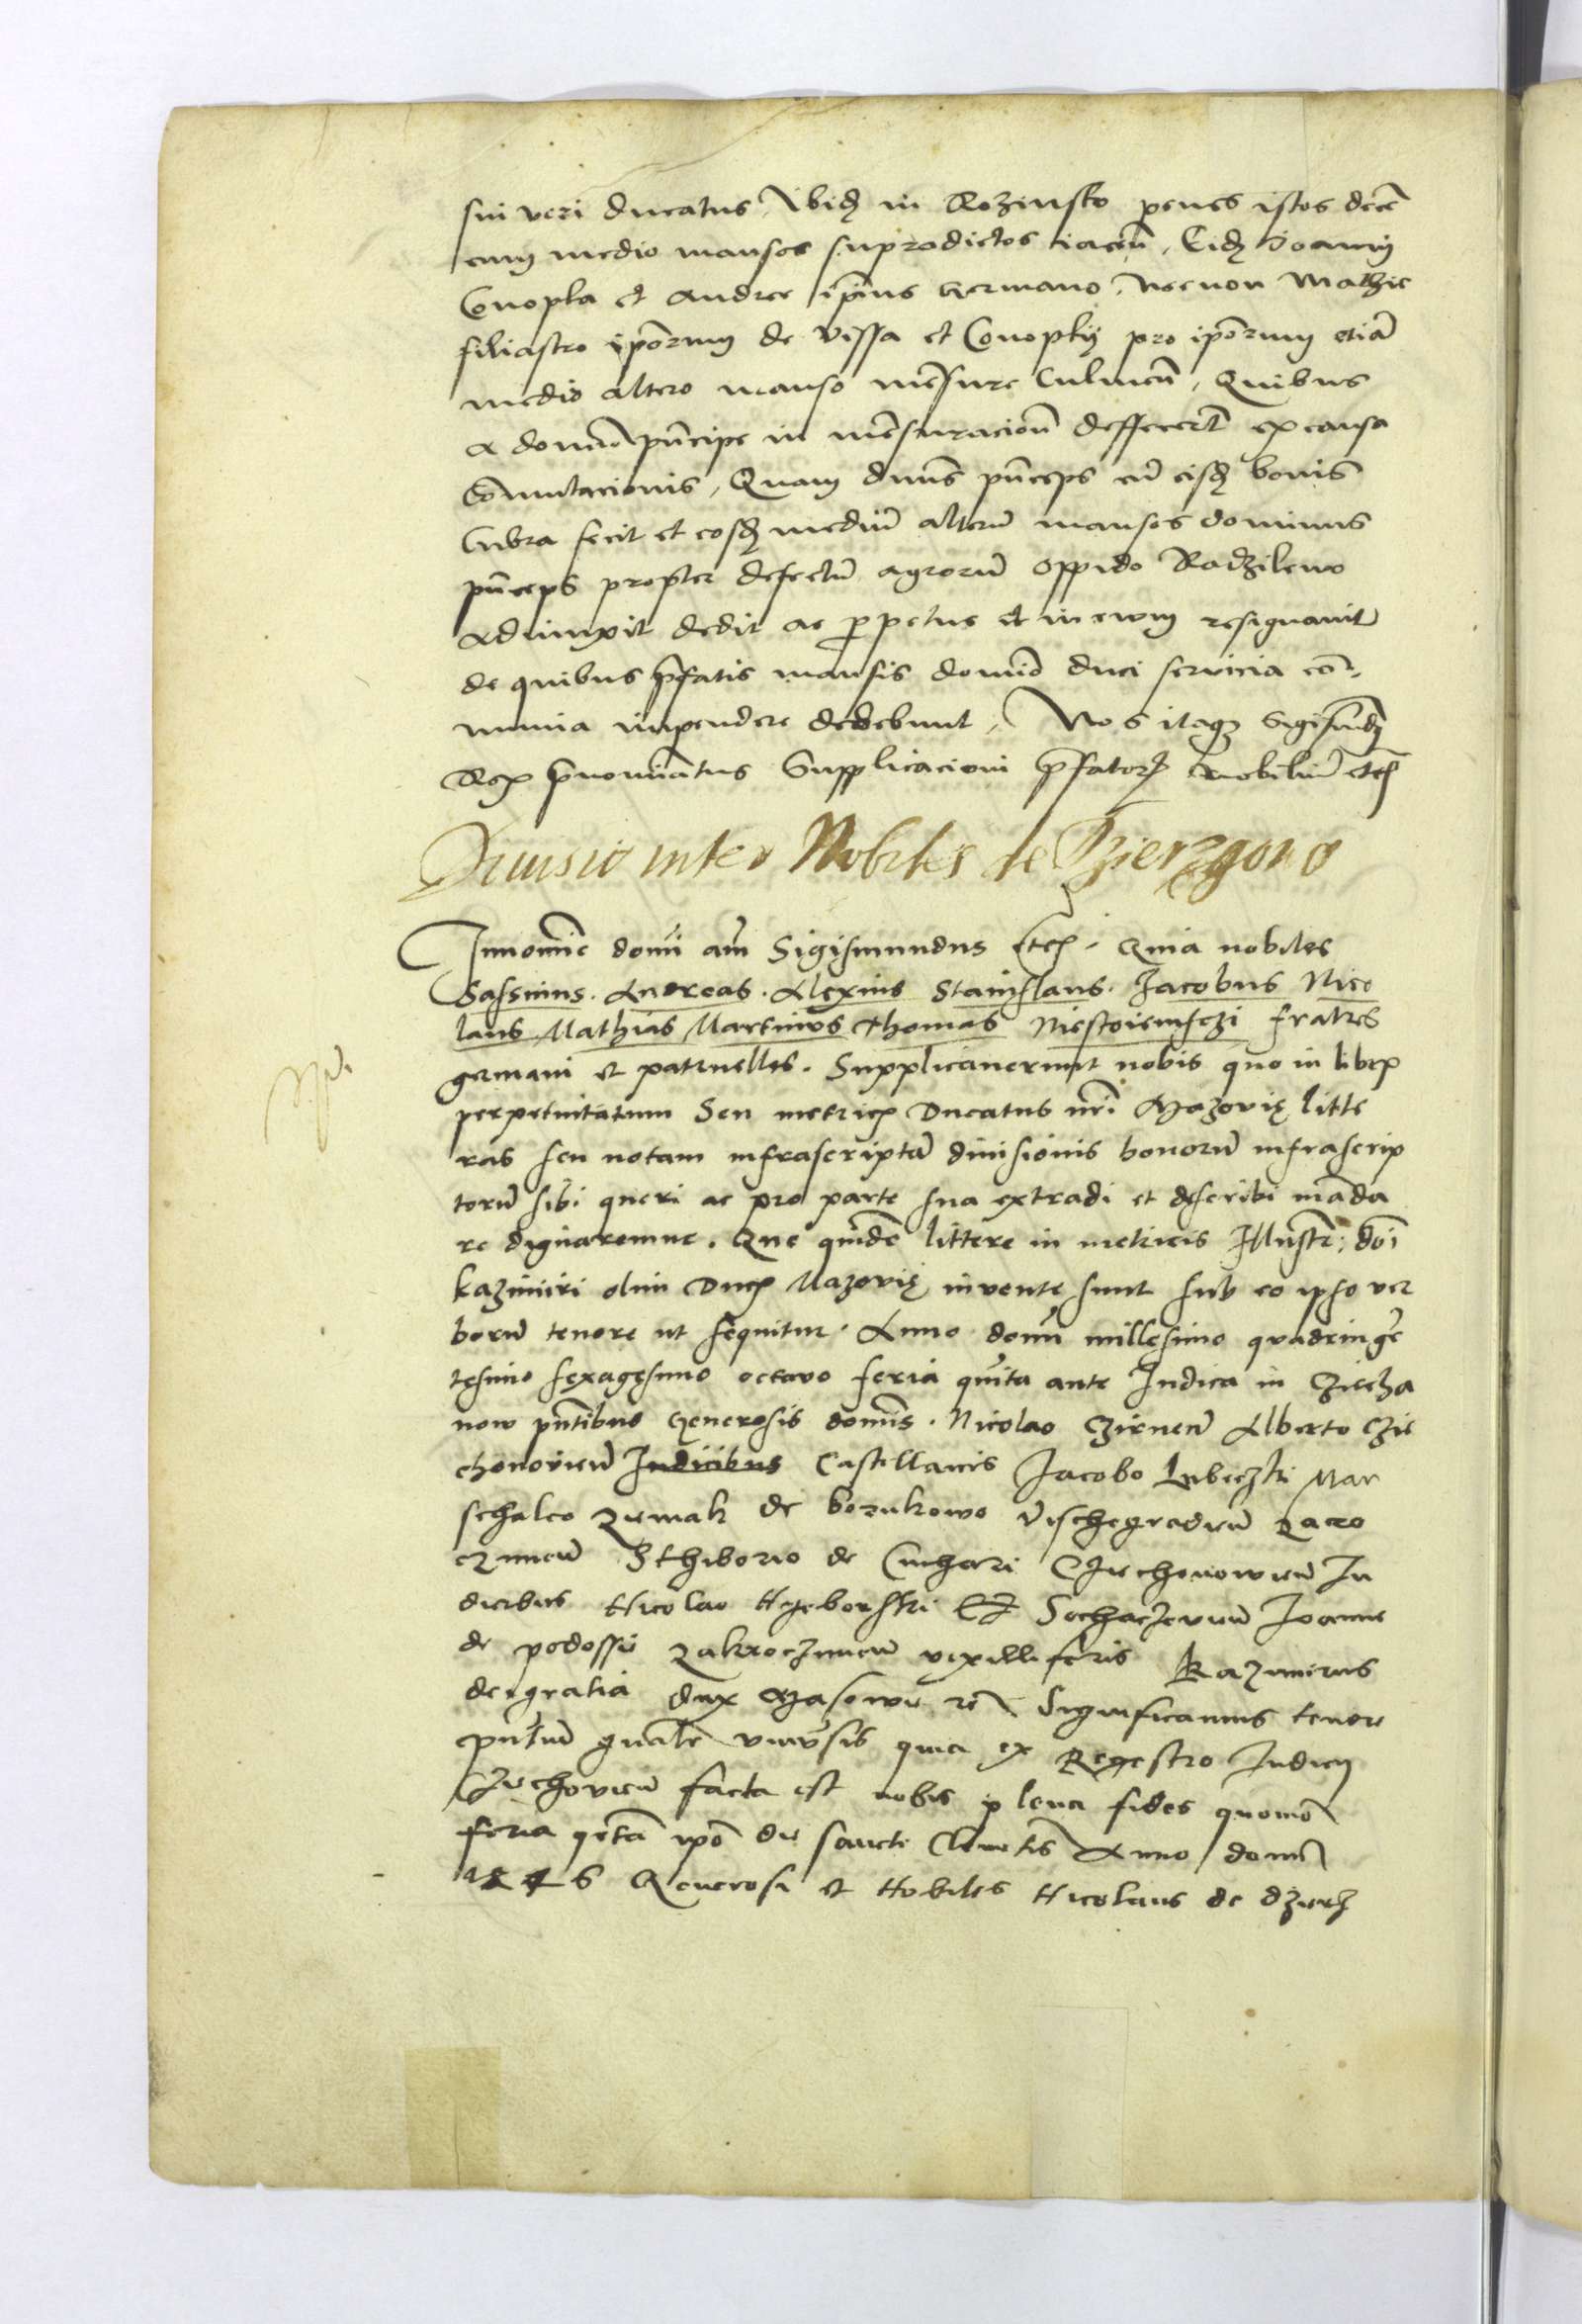 sui veri ducatus, Ibidē in Rozinsko penes istos decē
cum medio mansos supradictos iaceñ, Eidē Joanni
Conopka et Andree ipīus germano, Necnon Mathie
filiastro ipōrum de Vissa et Conopky pro ipōrum etiā
medio altero manso mēsure Culmeñ, Quibus
a domīo pñcipe in mēsuracioñ deffecerūt ex causa
Cōmutacionis, Quam dnūs pñceps cū eisdē bonis
fecit et eosdē mediū alterū mansos dominus
pñceps propter defectū agrorū oppido Radzilewo
adiunxit dedit ac perpetue et in ewm resignavit
de quibus p̄fatis mansis domīo duci servicia cō-
munia inpendere debebunt, Nos itaqz Sigismūdus
Rex p̄nomīatus Supplicacioni p̄fatorum nobiliū etc
Divisio inter Nobiles de Dzierzgowo
Innomīe domī amē Sigismundus etc. Quia nobiles
Sassinus. Andreas. Alexius Stanislaus. Jacobus Nico
laus Mathias Martinus Thomas Niestoiemsczi fratres
germani et patruelles. Supplicaverunt nobis quo in libris
perpetuitatum Seu metrices Ducatus nrī Mazovię litte
ras seu notam infrascriptā divisionis bonorū infrascrip
torū sibi queri ac pro parte sua extradi et describi māda
re dignaremur. Que quidē littere in metricis Illustr: dōi
Kazimiri olim Ducis Mazovię invente sunt sub eo ipso ver
borū tenore ut sequitur. Anno domī millesimo quadringē
tesimo sexagesimo octavo feria quīta ante Iudica in Cziecha
now pñtibus Generosis domīs. Nicolao Czirneñ Alberto Czie
chonovieñ Iudicibus Castellanis Jacobo Lubeczki Mar
schalco Ziemak de Borukowo Vischegradieñ Zacro
czimeñ Sthiborio de Ciechonowieñ Iu
dicibus Nicolao Et Sochaczevieñ Joanne
de podossie Zakroczimeñ vexilliferis Kazimirus
dei gratia dux Masowie rē Significamus tenore
pñtiū quia ex Regestro Iudicy
Ciechovieñ facta est nobis plena fides quomō
feria qntā ipō die sancti Clemētis Anno domī
Generosi et Nobiles Nicolaus de dzierz